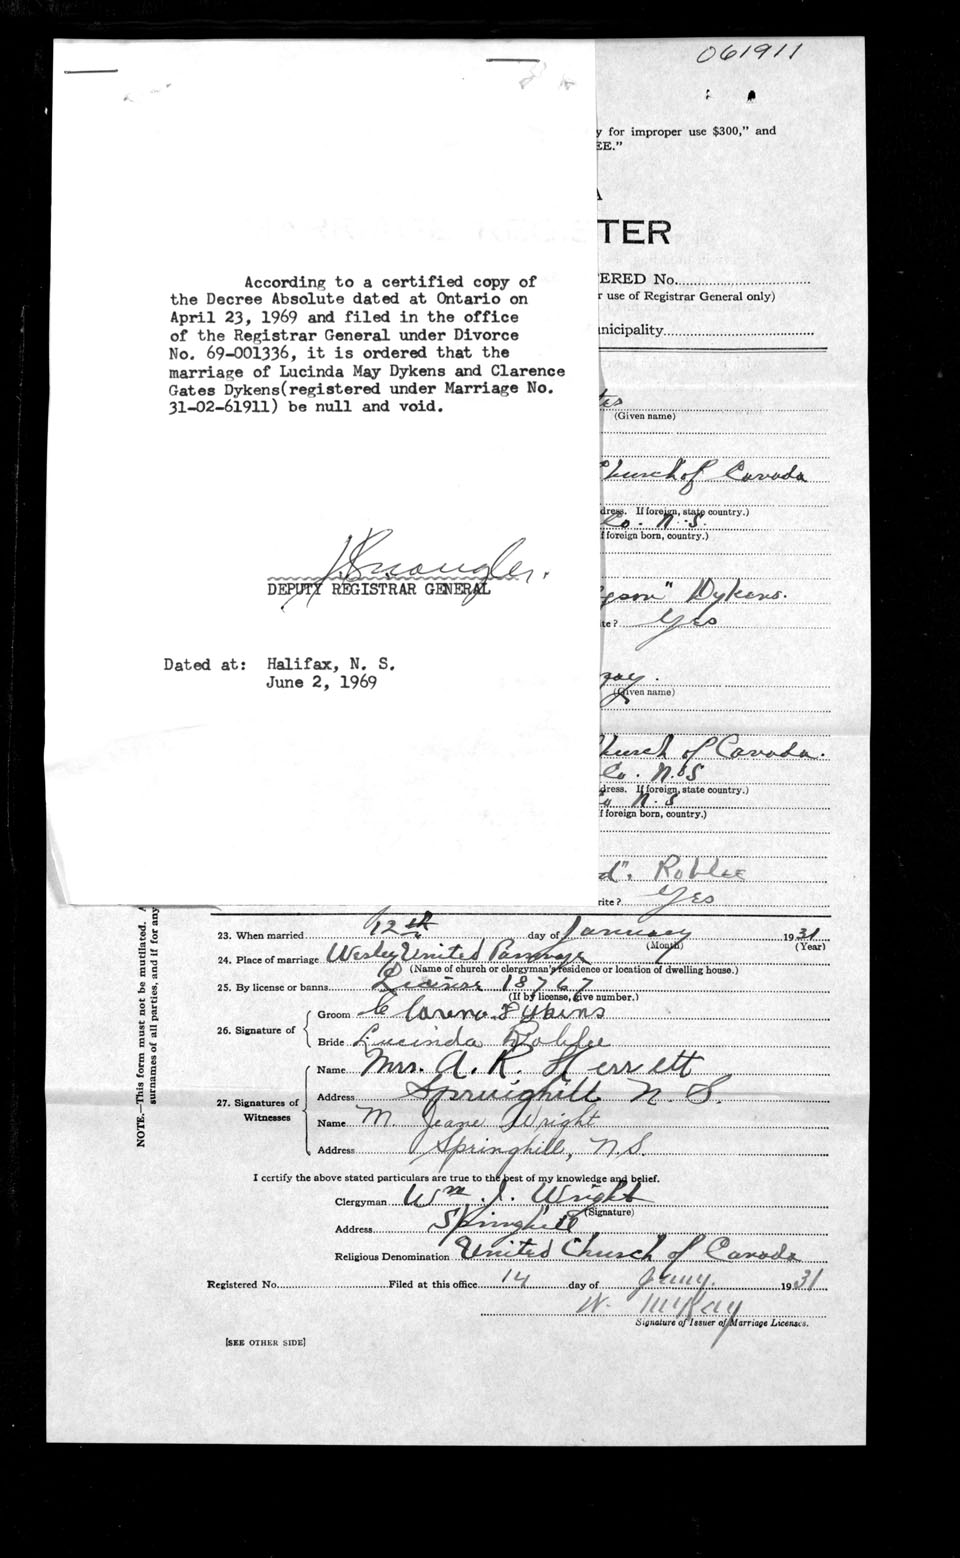 061911
y for improper use $300," and
EE."
A
TER
ERED No.
r use of Registrar General only)
unicipality
According to a certified copy of
the Decree Absolute dated at Ontario on
April 23, 1969 and filed in the office
of the Registrar General under Divorce
No. 69-001336, it is ordered that the
marriage of Lucinda May Dykens and Clarence
Gates Dykens(registered under Marriage No.
31-02-61911) be null and void.
DEPUTY REGISTRAR GENERAL
Dated at: Halifax, N. S.
June 2, 1969
tes
(Given name)
Church of Canada
dress. If foreign, state country.)
Co. N.S.
f foreign born, country.)
Dykens.
te? Yes
(Given name)
hurch of Canada.
Co. N.S
dress. If foreign, state country.)
N.S
f foreign born, country.)
d". Roblee
rite? Yes
NOTE.—This form must not be mutilated. A
surnames of all parties, and if for any
23. When married 12th day of January 1931
(Month) (Year)
24. Place of marriage Wesley United Parsonage
(Name of church or clergyman's residence or location of dwelling house.)
25. By license or banns License 18767
(If by license, give number.)
26. Signature of
Groom Clarence Dykens
Bride Lucinda Roblee
27. Signatures of Witnesses
Name Mrs. A. R. Herrett
Address Springhill N. S.
Name M. Jeane Wright
Address Springhill, N.S.
I certify the above stated particulars are true to the best of my knowledge and belief.
Clergyman Wm. J. Wright
(Signature)
Address Springhill
Religious Denomination United Church of Canada
Registered No. Filed at this office 14 day of Jany. 1931
W. McKay
Signature of Issuer of Marriage Licenses.
[SEE OTHER SIDE]